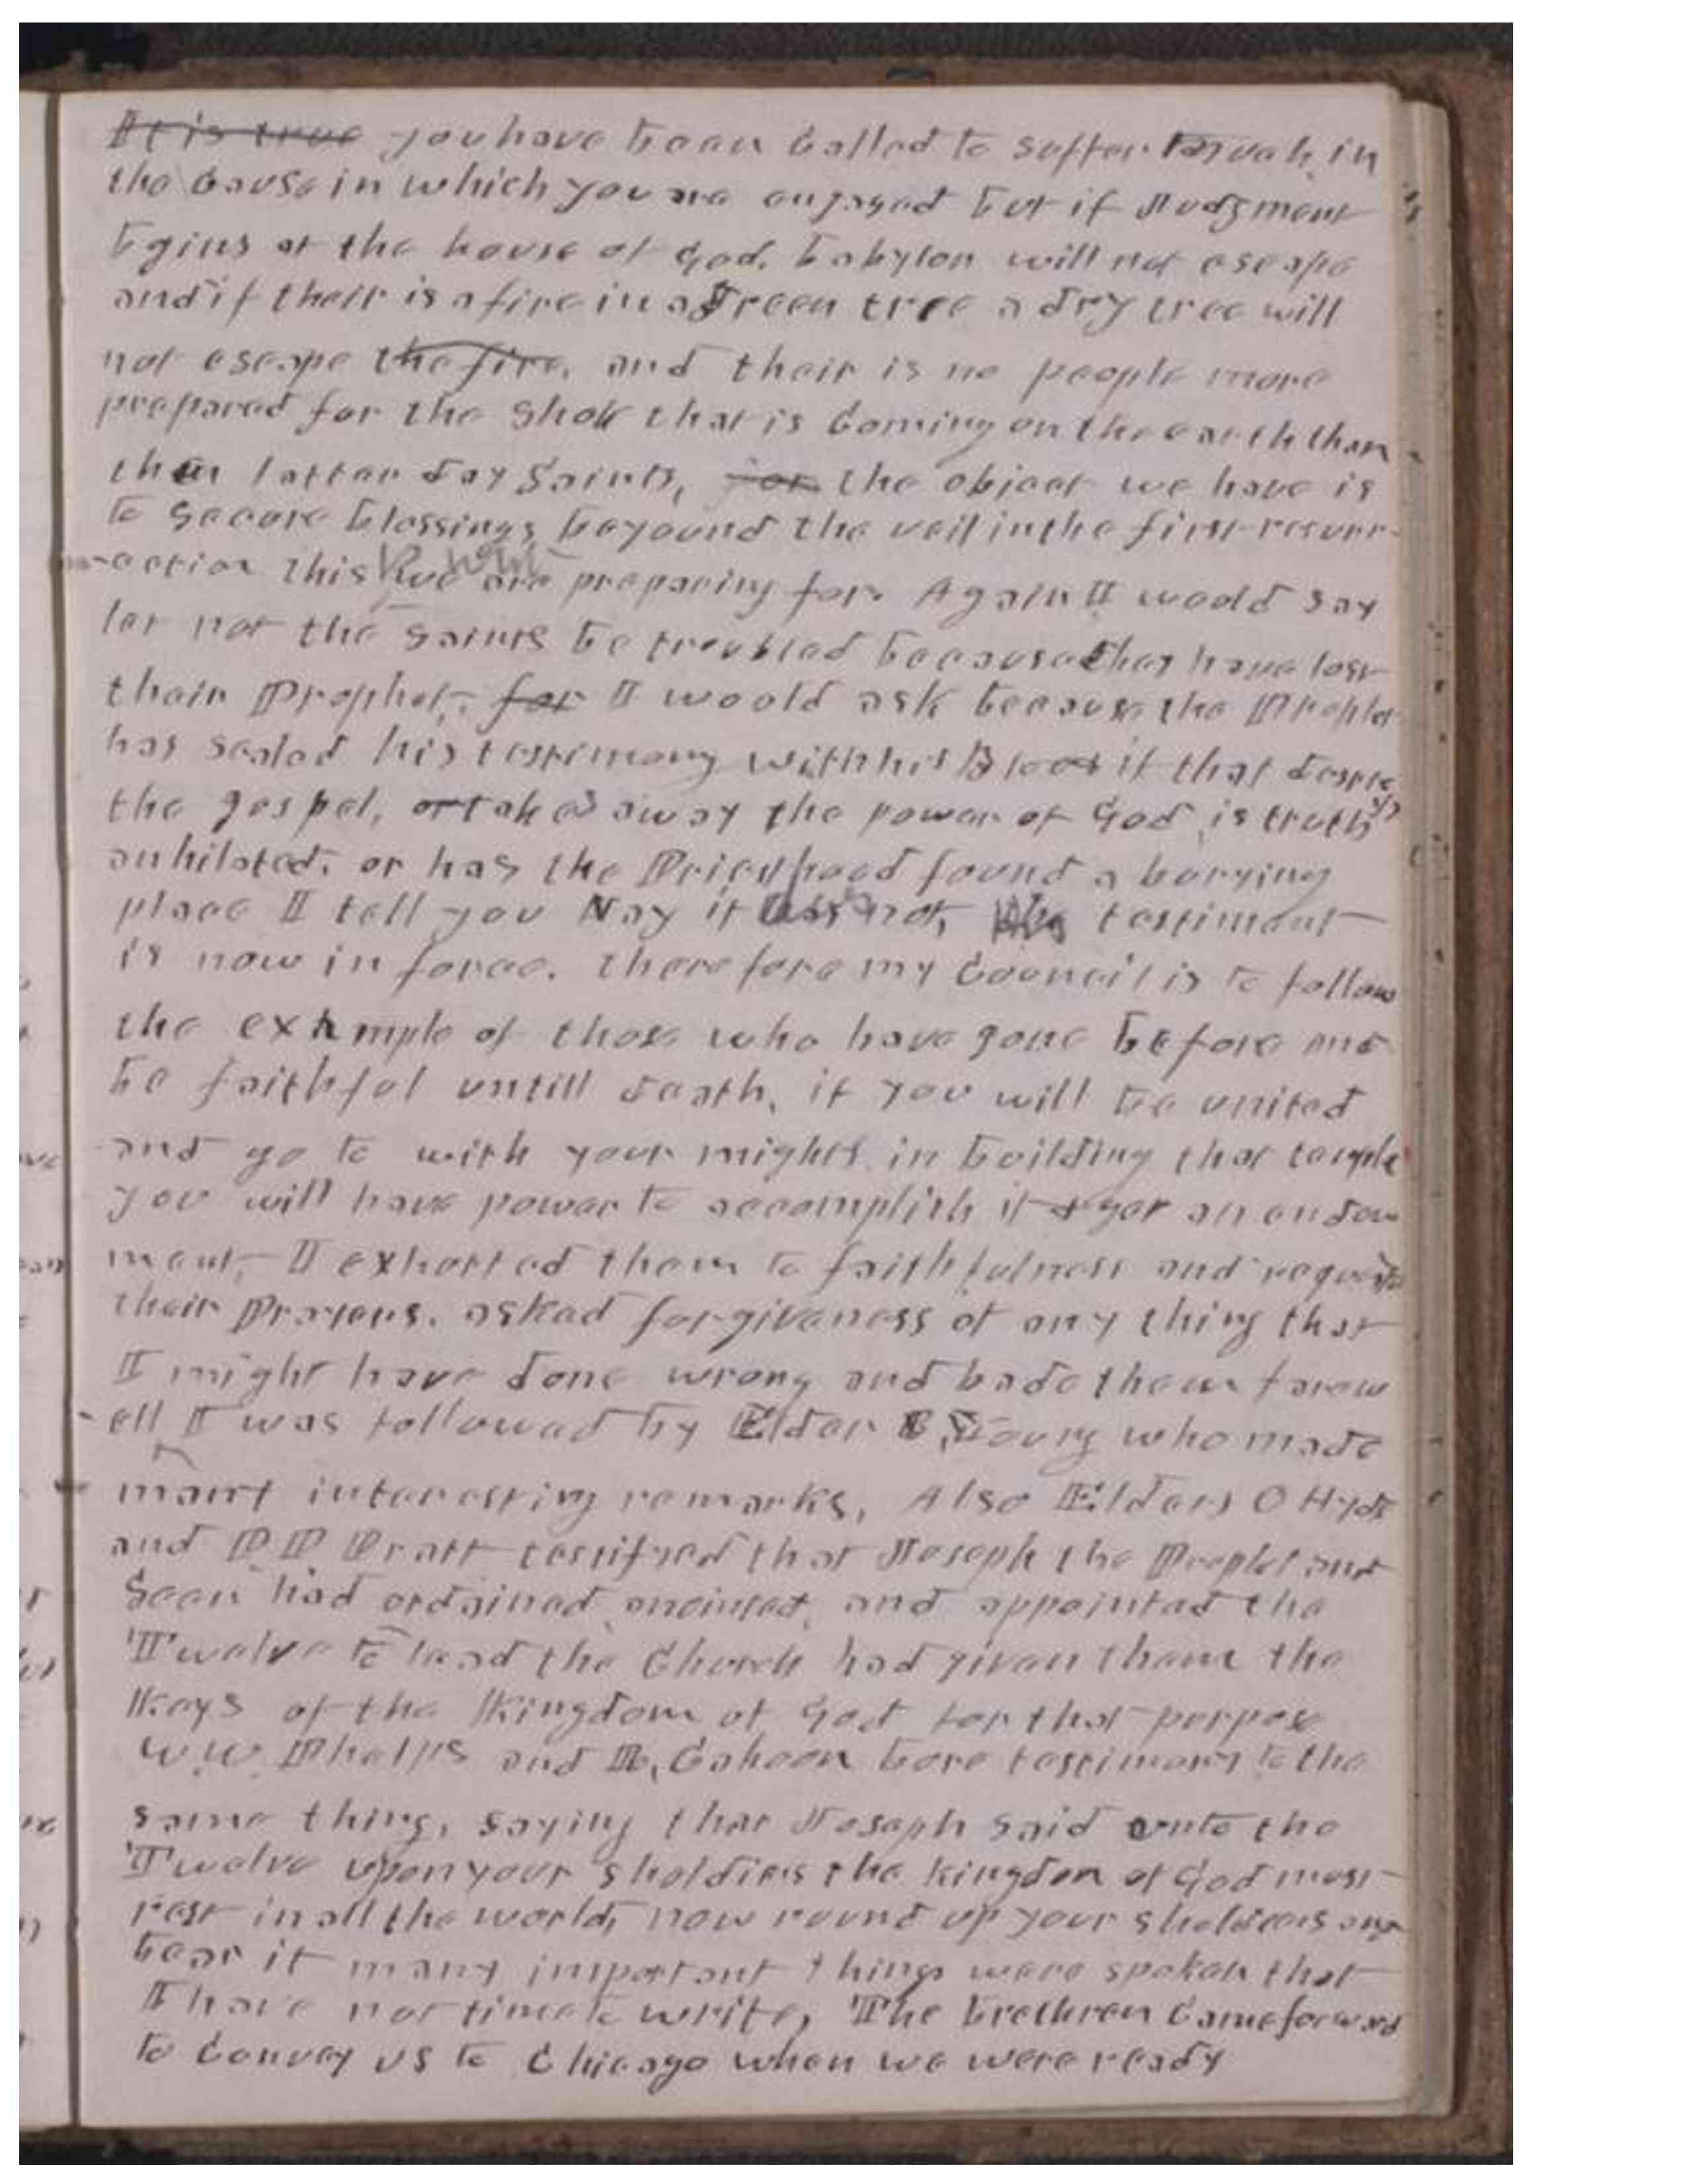 It is true you have been Called to suffer much in
the Cause in which you are engaged but if Judgment
bgins at the house of God. babylon will not escape
and if their is a fire in a green tree a dry tree will
not escape the fire, and their is no people more
prepared for the Shok that is Coming on the earth than
the latter day Saints, for the object we have is
to Secure blessings beyound the veil in the first resurr-
-ection this we are preparing for. Again I would say
let not the Saints be troubled because they have lost
their Prophet, for I would ask because the Prophet
has sealed his testimony with his Blood if that destroys
the gospel, or takes away the power of God, is truth
anhilated, or has the Priesthood found a burying
place I tell you Nay it has not, the testiment
is now in force. therefore my Council is to follow
the example of those who have gone before and
be faithful untill death, if you will be united
and go to with your mights in building that temple
you will have power to accomplish it & get an endow
ment, I exhorted them to faithfulness and requested
their Prayers. asked forgiveness of any thing that
I might have done wrong and bade them farew
-ell I was followed by Elder B Young who made
many interesting remarks, Also Elders O Hyde
and P P Pratt testifyed that Joseph the Prophet and
Seer had ordained anointed, and appointed the
Twelve to lead the Church had given them the
Keys of the Kingdom of God for that purpose
W. W. Phelps and R, Cahoon bore testimony to the
same thing, saying that Joseph said unto the
Twelve upon your sholdiers the kingdom of God must
rest in all the world, now round up your sholdiers and
bear it many important things were spoken that
I have not time to write, The brethren Came forward
to Convey us to Chicago when we were ready